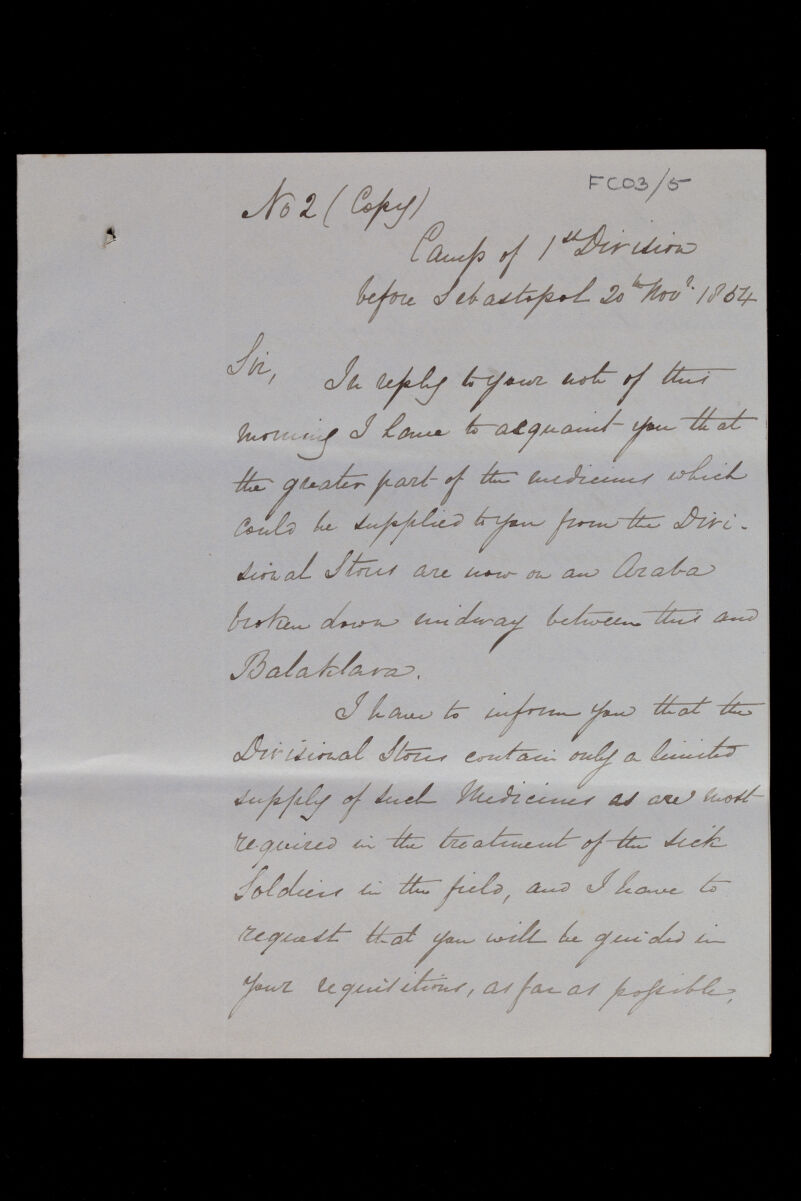 FC03/5
No 2 (Copy)
Camp of 1st Division
before Sebastopol 20th Novr. 1854
Sir,
In reply to your note of this
morning I have to acquaint you that
the greater part of the medicines which
could be supplied to you from the Divi-
sional Stores are now on an Araba
broken down midway between this and
Balaklava.
I have to inform you that the
Divisional Stores contain only a limited
supply of such Medicines as are most
required in the treatment of the sick
Soldiers in the field, and I have to
request that you will be guided in
your requisitions, as far as possible,